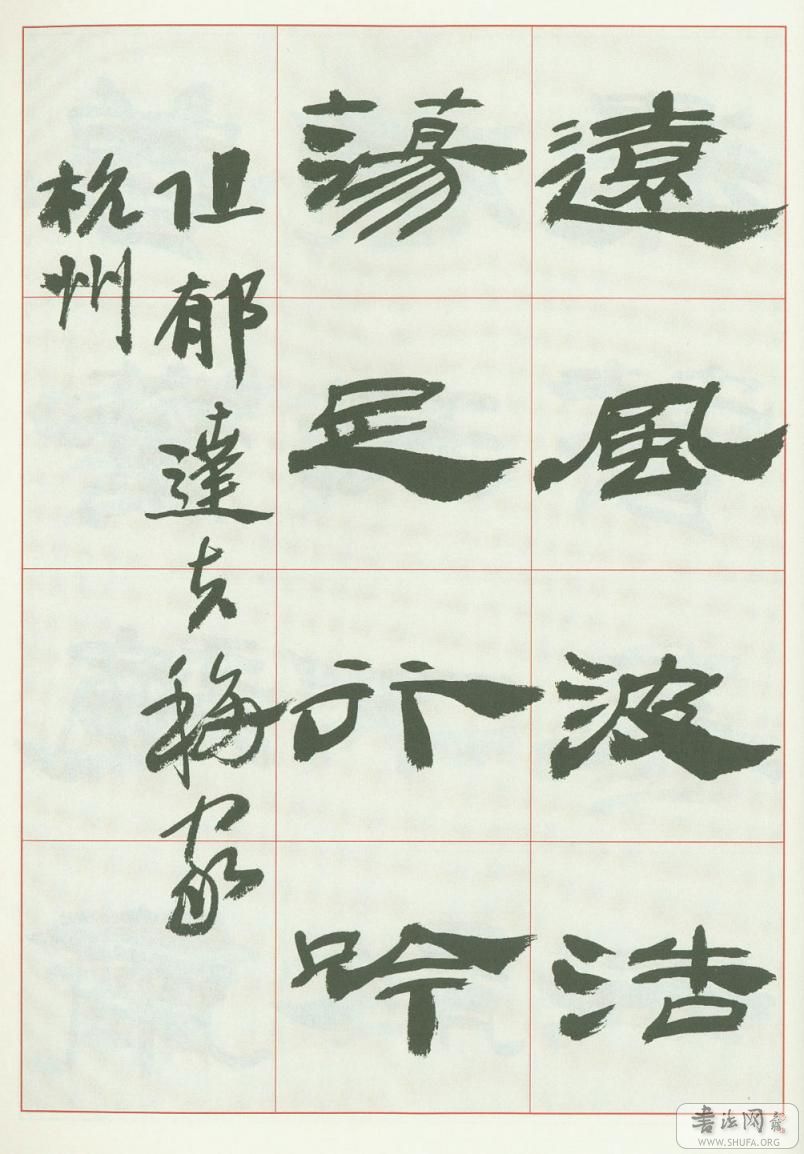 遠風波浩
蕩足行吟
阻郁達夫移家
杭州
書法网
WWW.SHUFA.ORG